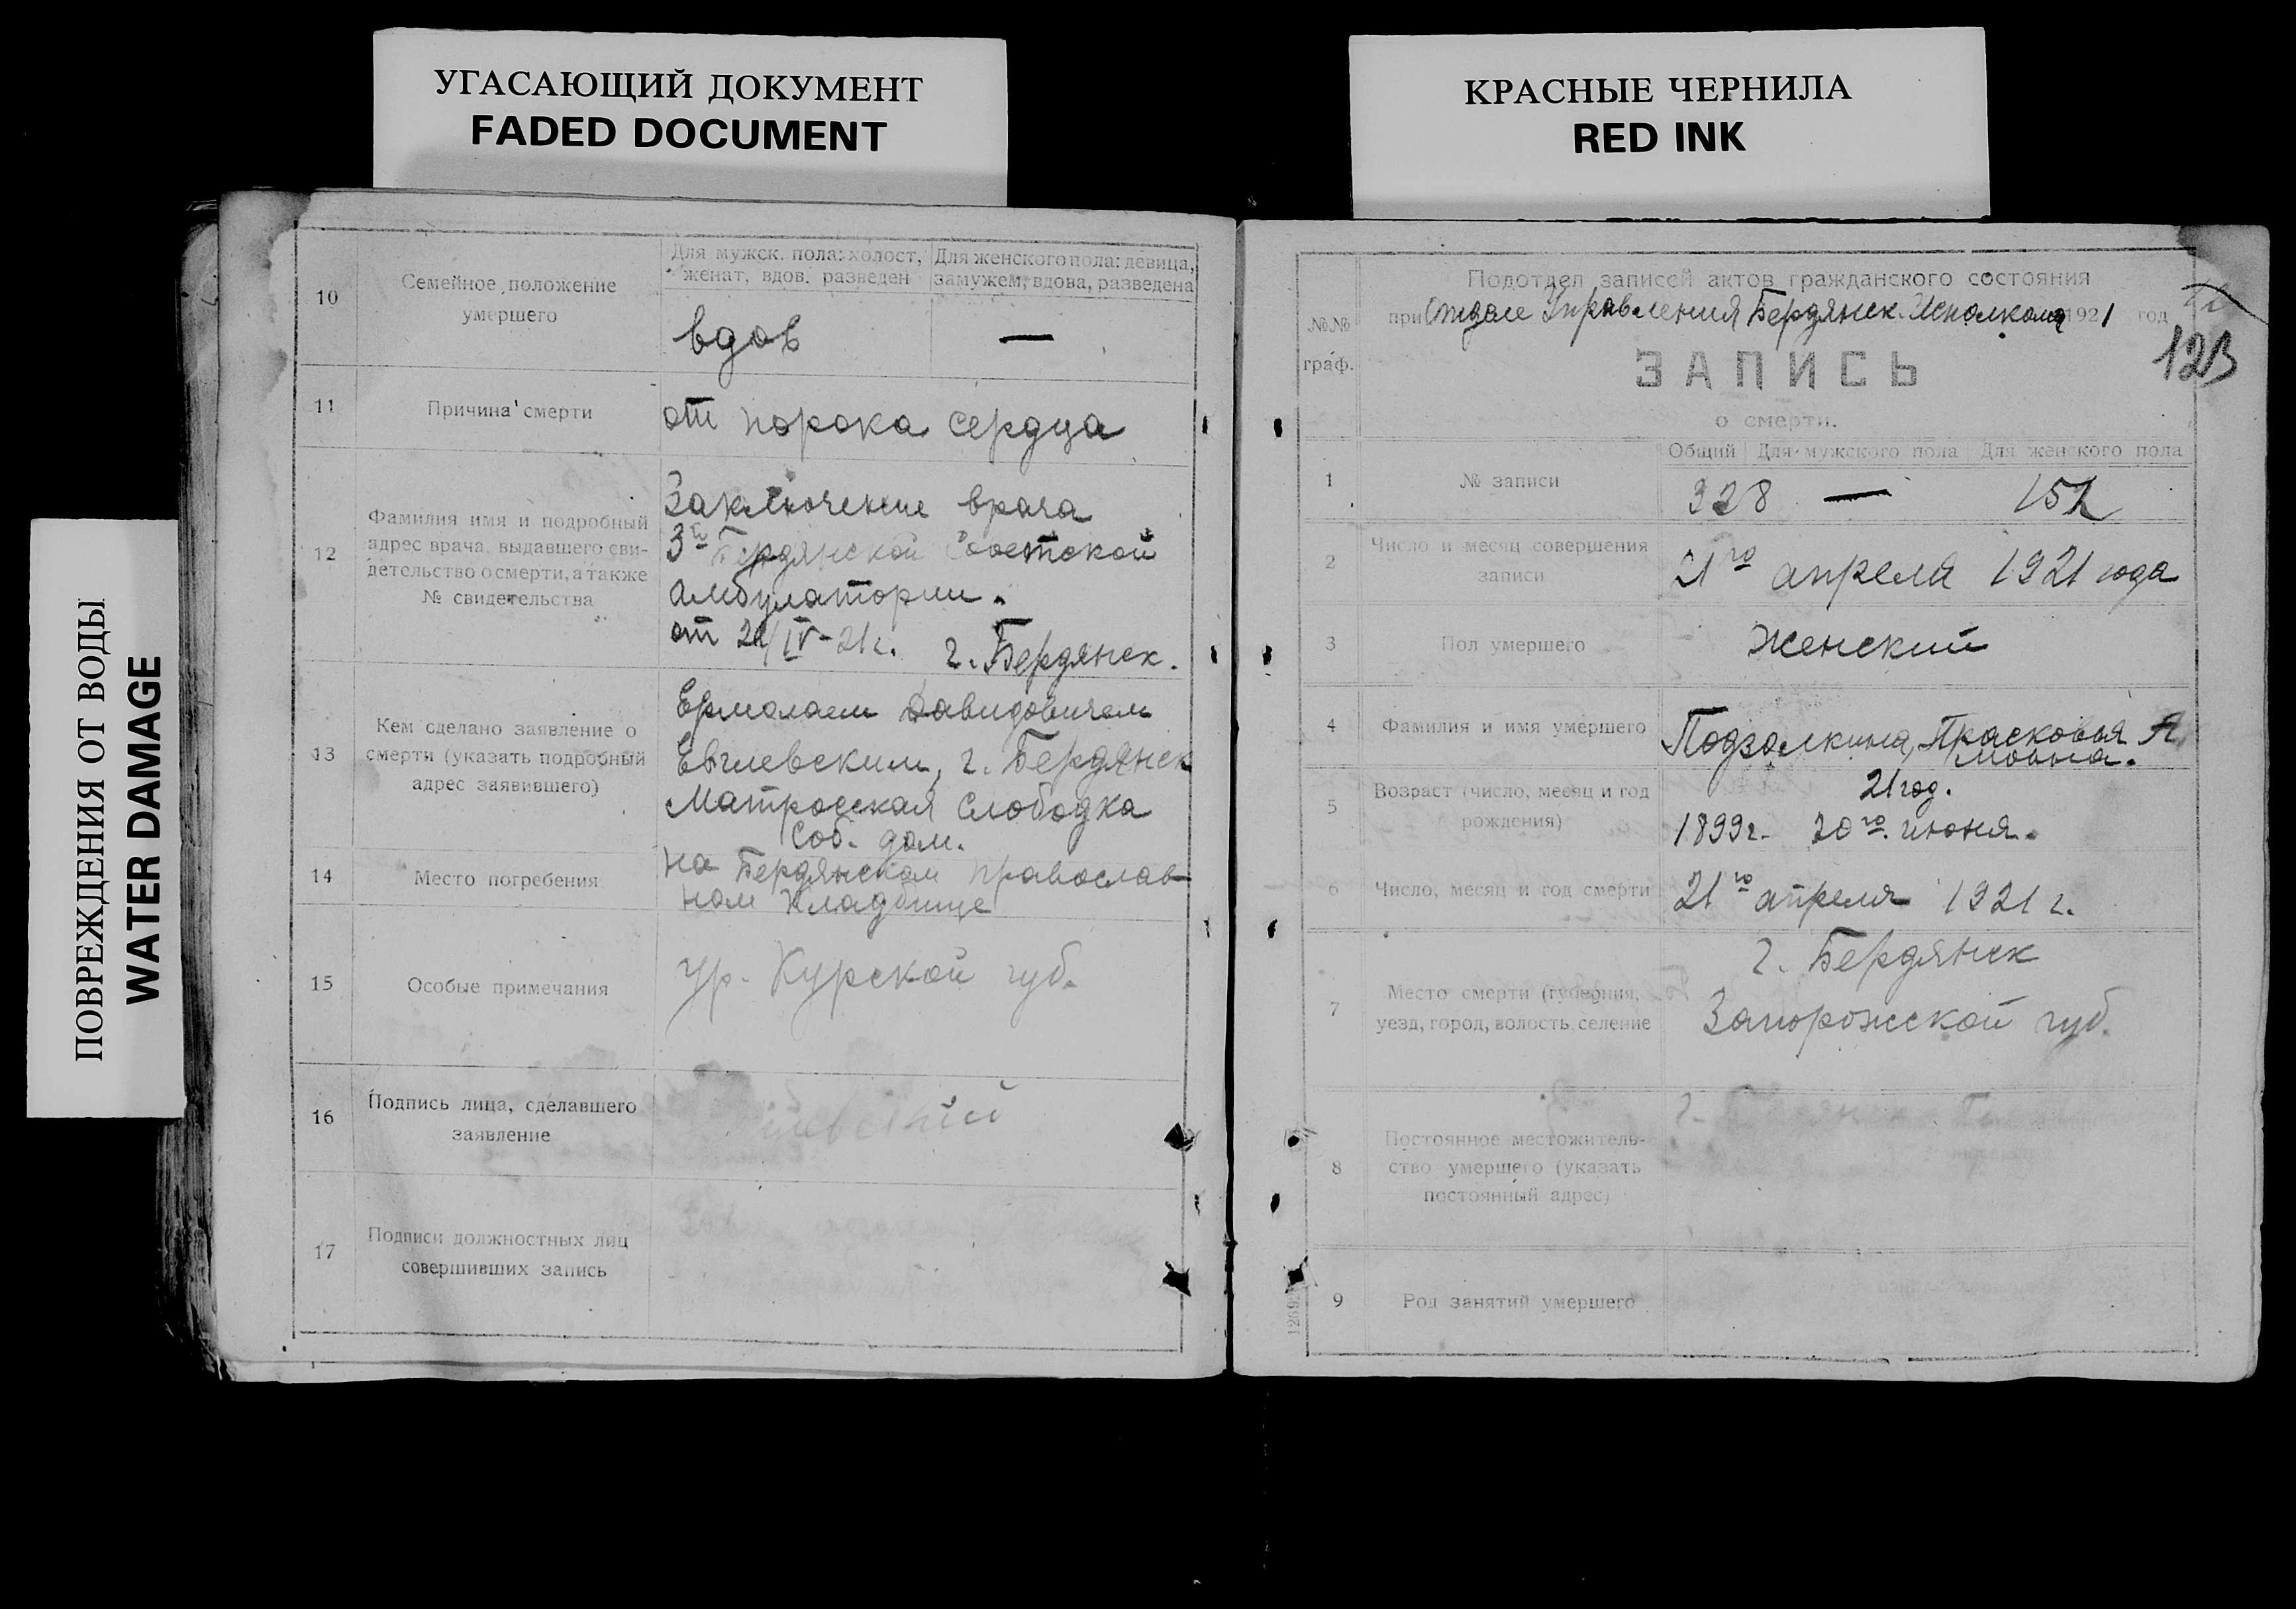 УГАСАЮЩИЙ ДОКУМЕНТ
FADED DOCUMENT
КРАСНЫЕ ЧЕРНИЛА
RED INK
ПОВРЕЖДЕНИЯ ОТ ВОДЫ
WATER DAMAGE
10
Семейное положение
умершего
Для мужск. пола: холост,
женат, вдов. разведен
Для женского пола: девица,
замужем, вдова, разведена
вдов
—
11
Причина смерти
от порока сердца
12
Фамилия имя и подробный
адрес врача, выдавшего сви-
детельство о смерти, а также
№ свидетельства
Заключение врача
3й Бердянской Советской
амбулатории.
от /IV-21г. г. Бердянск.
13
Кем сделано заявление о
смерти (указать подробный
адрес заявившего)
Ермолаем Давидовичем
г. Бердянск
Матросская слободка
соб. дом.
14
Место погребения
на Бердянском православ-
ном кладбище
15
Особые примечания
ур. Курской губ.
16
Подпись лица, сделавшего
заявление
17
Подписи должностных лиц
совершивших запись
№№
граф.
Подотдел записей актов гражданского состояния
при Отделе Управления Бердянск. Исполкома 1921 год
ЗАПИСЬ
о смерти.
1
№ записи
Общий Для мужского пола Для женского пола
328 — 152
2
Число и месяц совершения
записи
21го апреля 1921 года
3
Пол умершего
Женский
4
Фамилия и имя умершего
Подзолкина, Прасковья
5
Возраст (число, месяц и год
рождения)
21 год.
1899г. 20го июня.
6
Число, месяц и год смерти
21го апреля 1921 г.
7
Место смерти (губерния,
уезд, город, волость, селение
г. Бердянск
Запорожской губ.
8
Постоянное местожитель-
ство умершего (указать
постоянный адрес)
9
Род занятий умершего